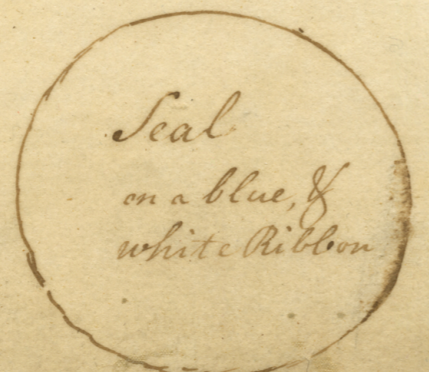 Seal
on a blue, &
white Ribbon